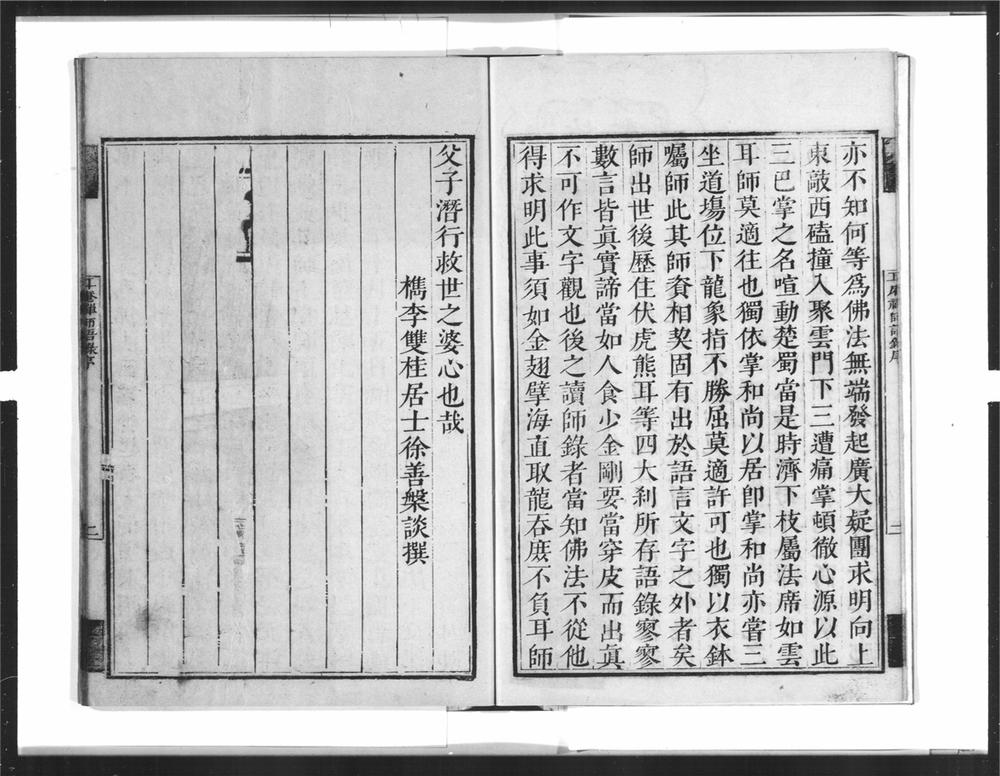 亦不知何等爲佛法無端發起廣大疑團求明向上
東敲西磕撞入聚雲門下三遭痛掌頓徹心源以此
三巴掌之名喧動楚蜀當是時濟下枝屬法席如雲
耳師莫適往也獨依掌和尚以居卽掌和尚亦嘗三
坐道塲位下龍象指不勝屈莫適許可也獨以衣鉢
囑師此其師資相契固有出於語言文字之外者矣
師出世後歷住伏虎熊耳等四大刹所存語錄寥寥
數言皆眞實諦當如人食少金剛要當穿皮而出眞
不可作文字觀也後之讀師錄者當知佛法不從他
得求明此事須如金翅擘海直取龍吞庻不負耳師
父子潛行救世之婆心也哉
檇李雙桂居士徐善槃談撰
禪師語錄序
二